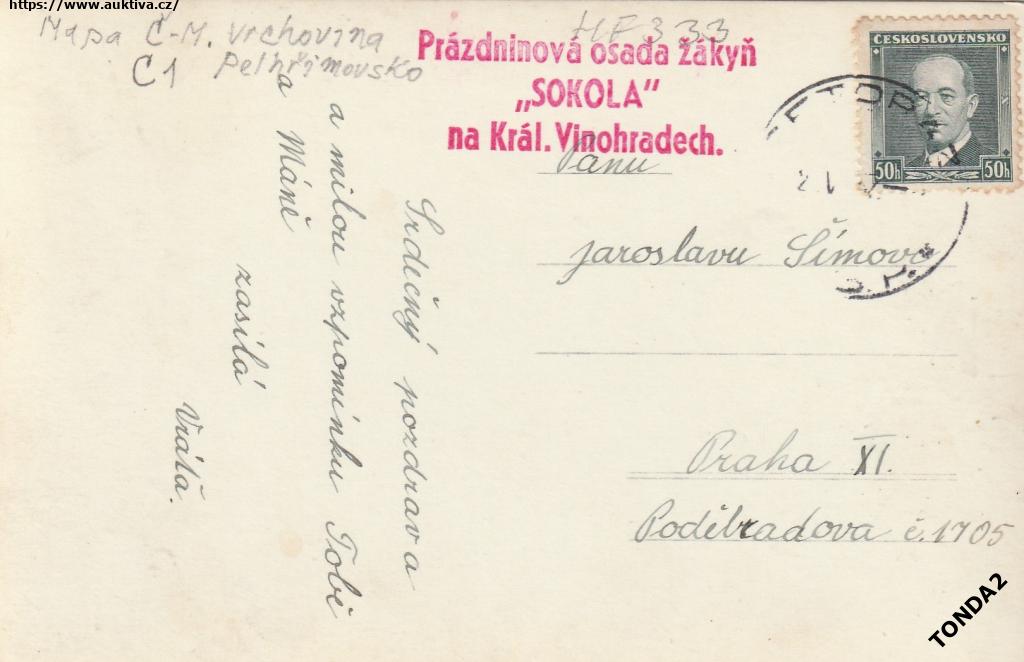 https://www.auktiva.cz/
Mapa Č-M. Vrchovina
Č1 Pelhřimovsko
HF333
Prázdninová osada žákyň
„SOKOLA"
na Král. Vinohradech.
ČESKOSLOVENSKO
50h 50h
Pánu
Jaroslavu Šímovi
Praha XI.
Poděbradova č. 1705
Srdečný pozdrav a
a milou vzpomínku Tobě
a Máně
zasílá
Viátá.
TONDA2